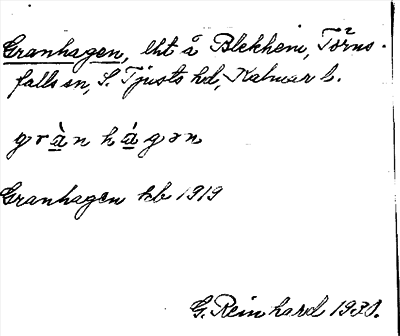 Granhagen, lht å Blekhem, Törns-
falls sn, S. Tjusts hd, Kalmar l.
grà̱n há̱gən
Granhagen kb 1919
G. Reinhard 1930.